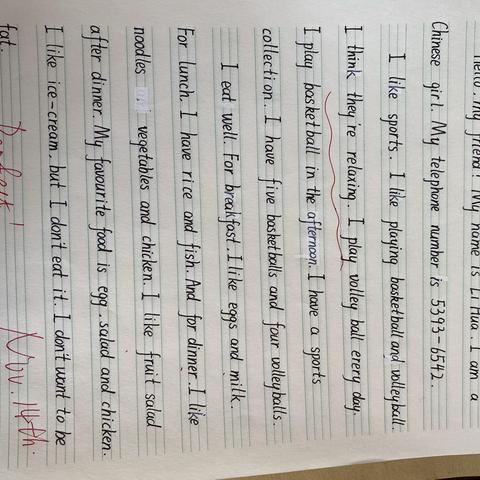 Hello, my friend! My name is Li Hua. I am a
Chinese girl. My telephone number is 5393-6542.
I like sports. I like playing basketball and volleyball.
I think they're relaxing. I play volley ball erery day.
I play basketball in the afternoon. I have a sports
collection. I have five basketballs and four volleyballs.
I eat well. For breakfast. I like eggs and milk.
For lunch. I have rice and fish. And for dinner. I like
noodles vegetables and chicken. I like fruit salad
after dinner. My favourite food is egg. salad and chicken.
I like ice-cream. but I don't eat it. I don't want to be
fat.
Perfect!
Nov. 14th.